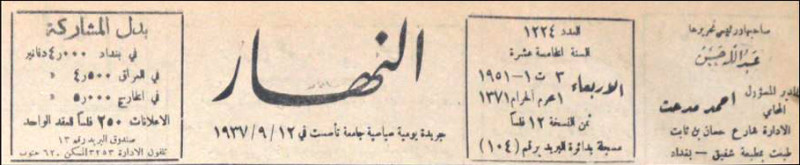 صاحبها ورئيس تحريرها
عبد الله حسن
المدير المسؤول
المحامي احمد مدحت
الادارة شارع حسان بن ثابت
طبعت بمطبعة شفيق — بغداد
العدد ١٢٢٤
السنة الخامسة عشرة
الاربعاء ٣ ت ١ - ١٩٥١
١ محرم الحرام ١٣٧١
ثمن النسخة ١٢ فلسا
مسجلة بدائرة البريد برقم (١٠٤)
النهار
جريدة يومية سياسية جامعة تأسست في ١٢ / ٩ / ١٩٣٧
بدل المشاركة
في بغداد ٠٠٠ر٤ دنانير
في العراق ٥٠٠ر٤ «
في الخارج ٠٠٠ر٥ «
الاعلانات ٢٥٠ فلساً للعقد الواحد
صندوق البريد رقم ١٣
تلفون الادارة ٣٢٥٣ المسكن ٦٢٠ جنوب